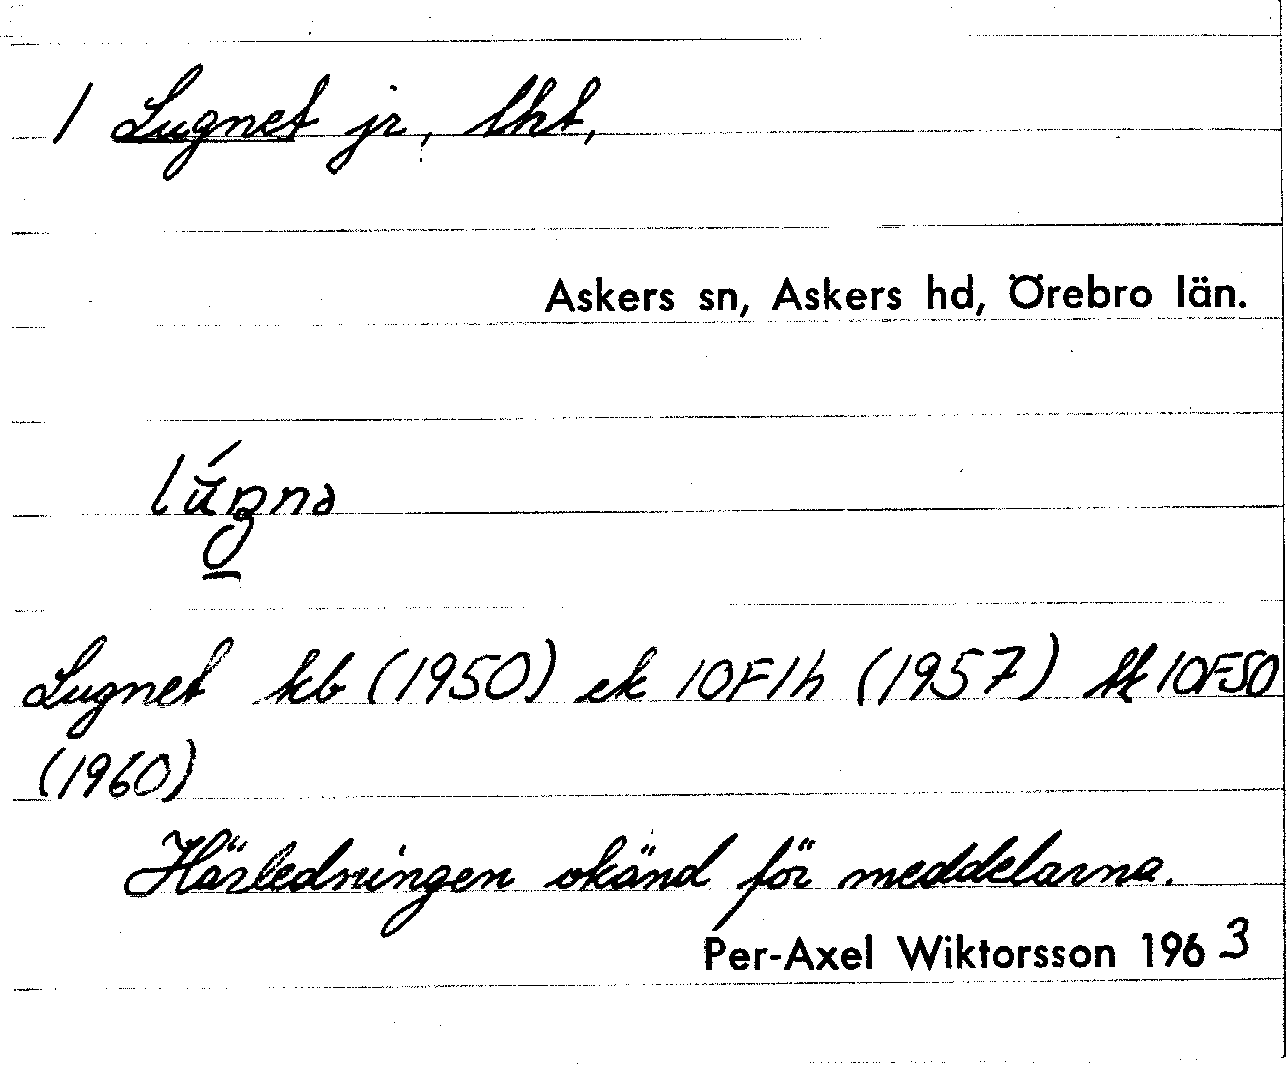 1 Lugnet jr, lht,
Askers sn, Askers hd, Örebro län.
Lugnet kb (1950) ek 10F1h (1957) tk 10FSO
(1960)
Härledningen okänd för meddelarna.
Per-Axel Wiktorsson 1963